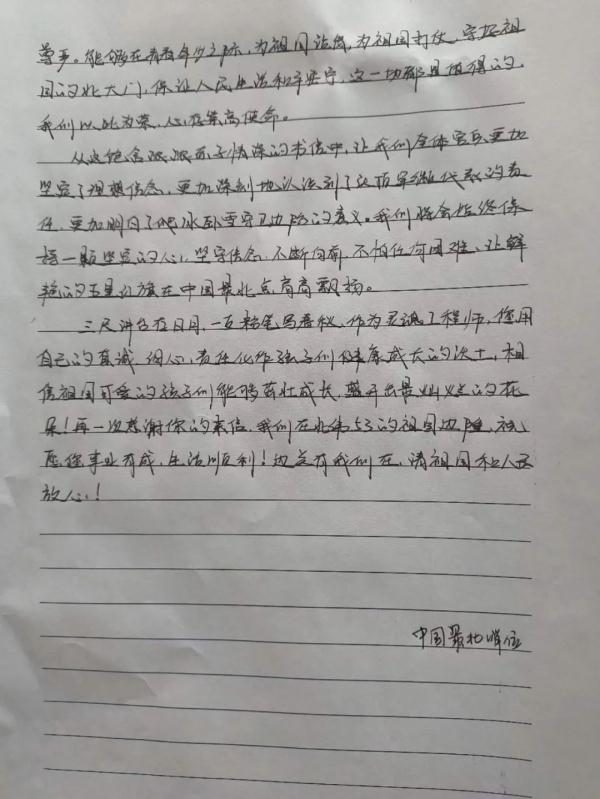 尊严。能够在青春年少之际，为祖国站岗，为祖国打仗，守好祖
国的北大门，保证人民生活和平安宁，这一切都是值得的，
我们以此为荣，心存崇高使命。
从这饱含浓浓赤子情深的书信中，让我们全体官兵更加
坚定了理想信念，更加深刻地认识到了这顶军帽代表的责
任，更加明白了爬冰卧雪守卫边防的意义。我们将会始终保
持一颗坚定的心，坚守信念，不断向前，不怕任何困难，让鲜
艳的五星红旗在中国最北点高高飘扬。
三尺讲台在日月，一支粉笔写春秋，作为灵魂工程师，您用
自己的真诚、细心、责任化作孩子们健康成长的沃土，相
信祖国可爱的孩子们能够茁壮成长，盛开出最灿烂的花
朵！再一次感谢你的来信，我们在北纬53的祖国边陲，祝
愿您事业有成，生活顺利！边疆有我们在，请祖国和人民
放心！
中国最北哨位